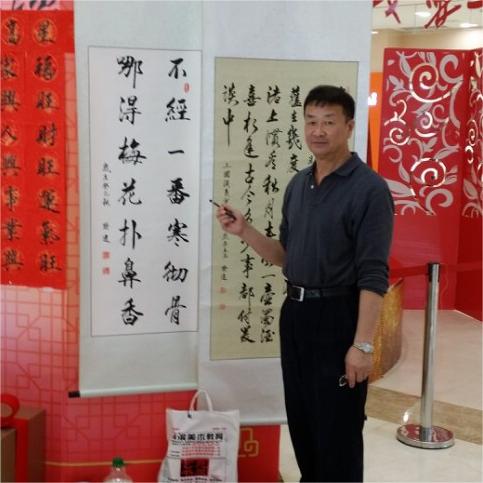 舊在幾度
渚上慣看秋月春風一壺濁酒
喜相逢古今多少事都付笑
談中
不經一番寒彻骨
哪得梅花扑鼻香
福旺財旺運氣旺
家興人興事業興
美术教育